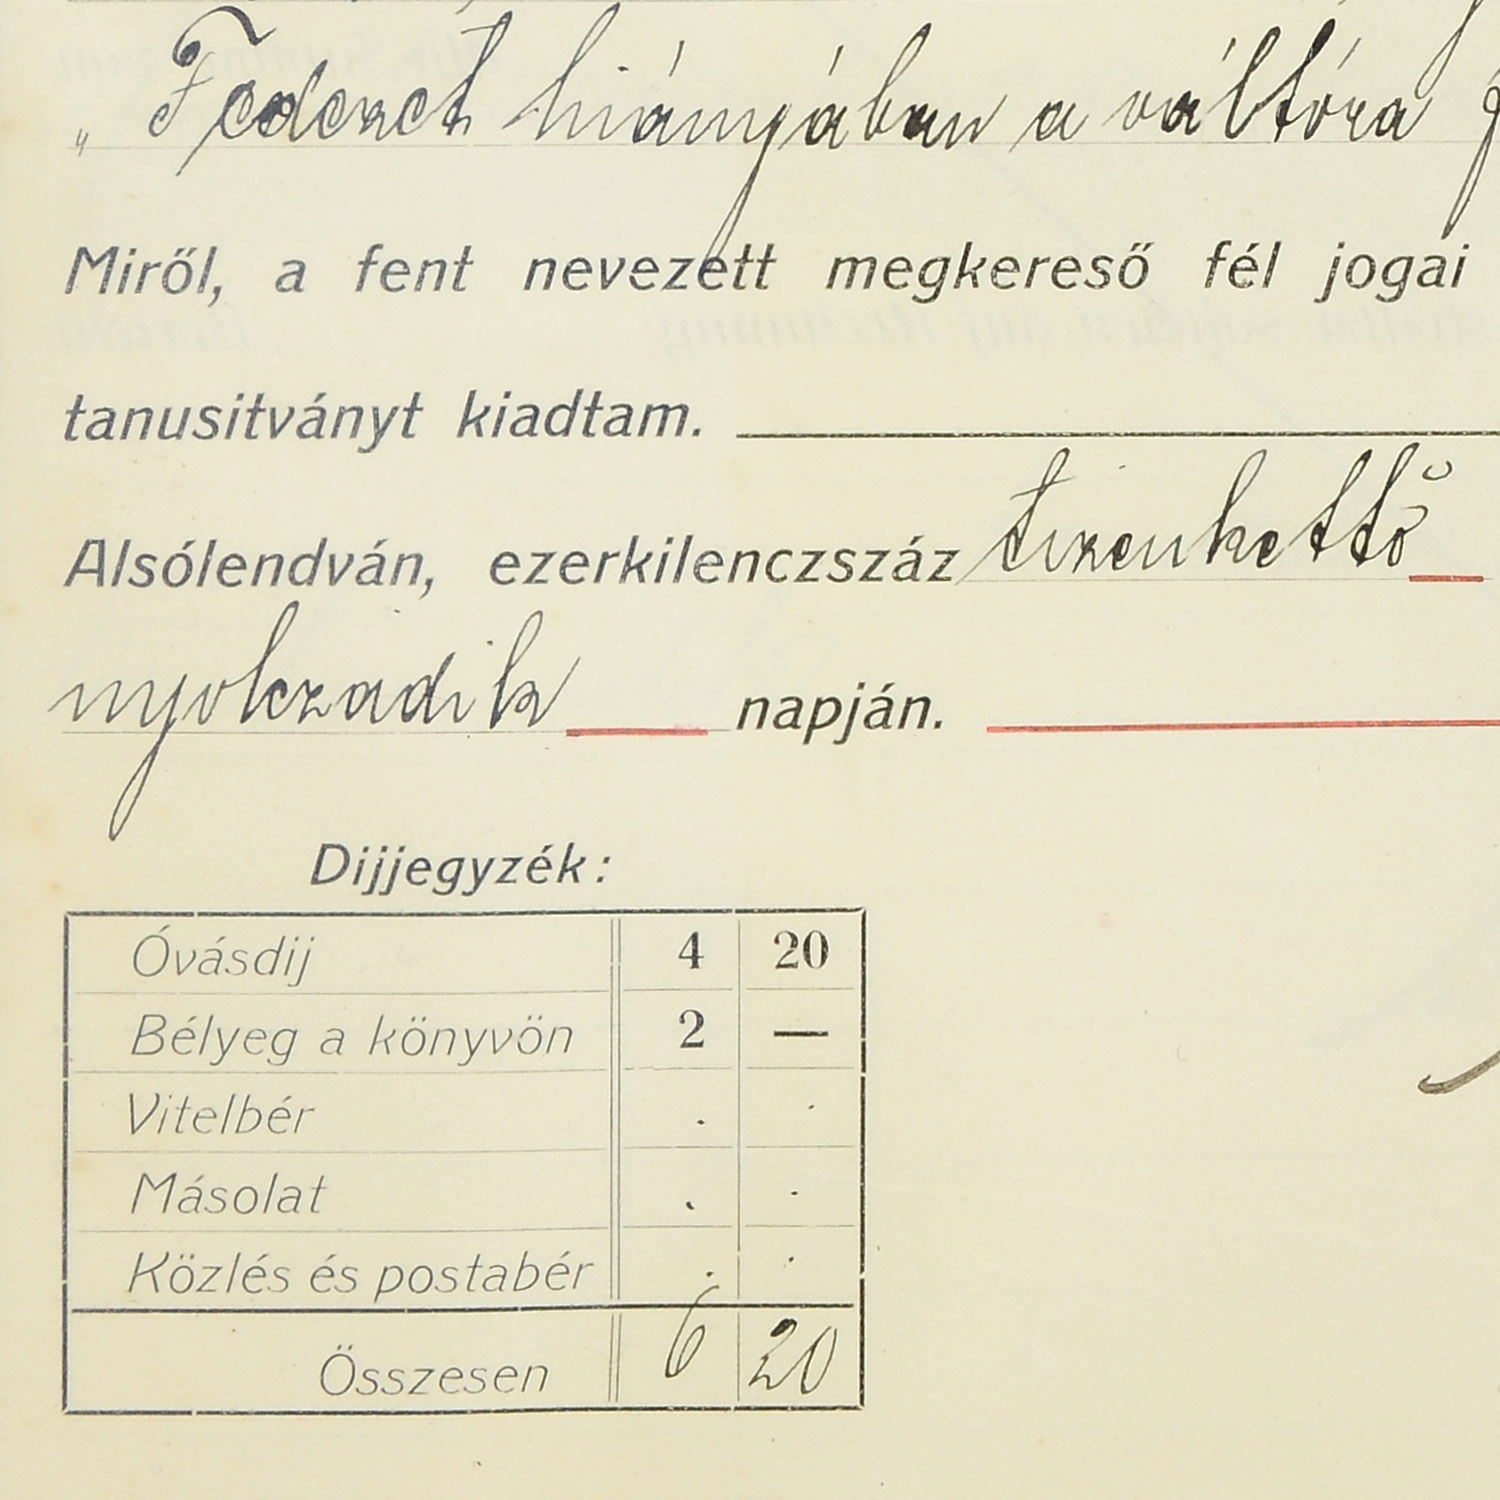 „ Fedezet hiányában a váltóra
Miről, a fent nevezett megkereső fél jogai
tanusitványt kiadtam.
Alsólendván, ezerkilenczszáz tizenkettő
nyolczadik napján.
Dijjegyzék:
Óvásdij 4 20
Bélyeg a könyvön 2 —
Vitelbér . .
Másolat . .
Közlés és postabér . .
Összesen 6 20